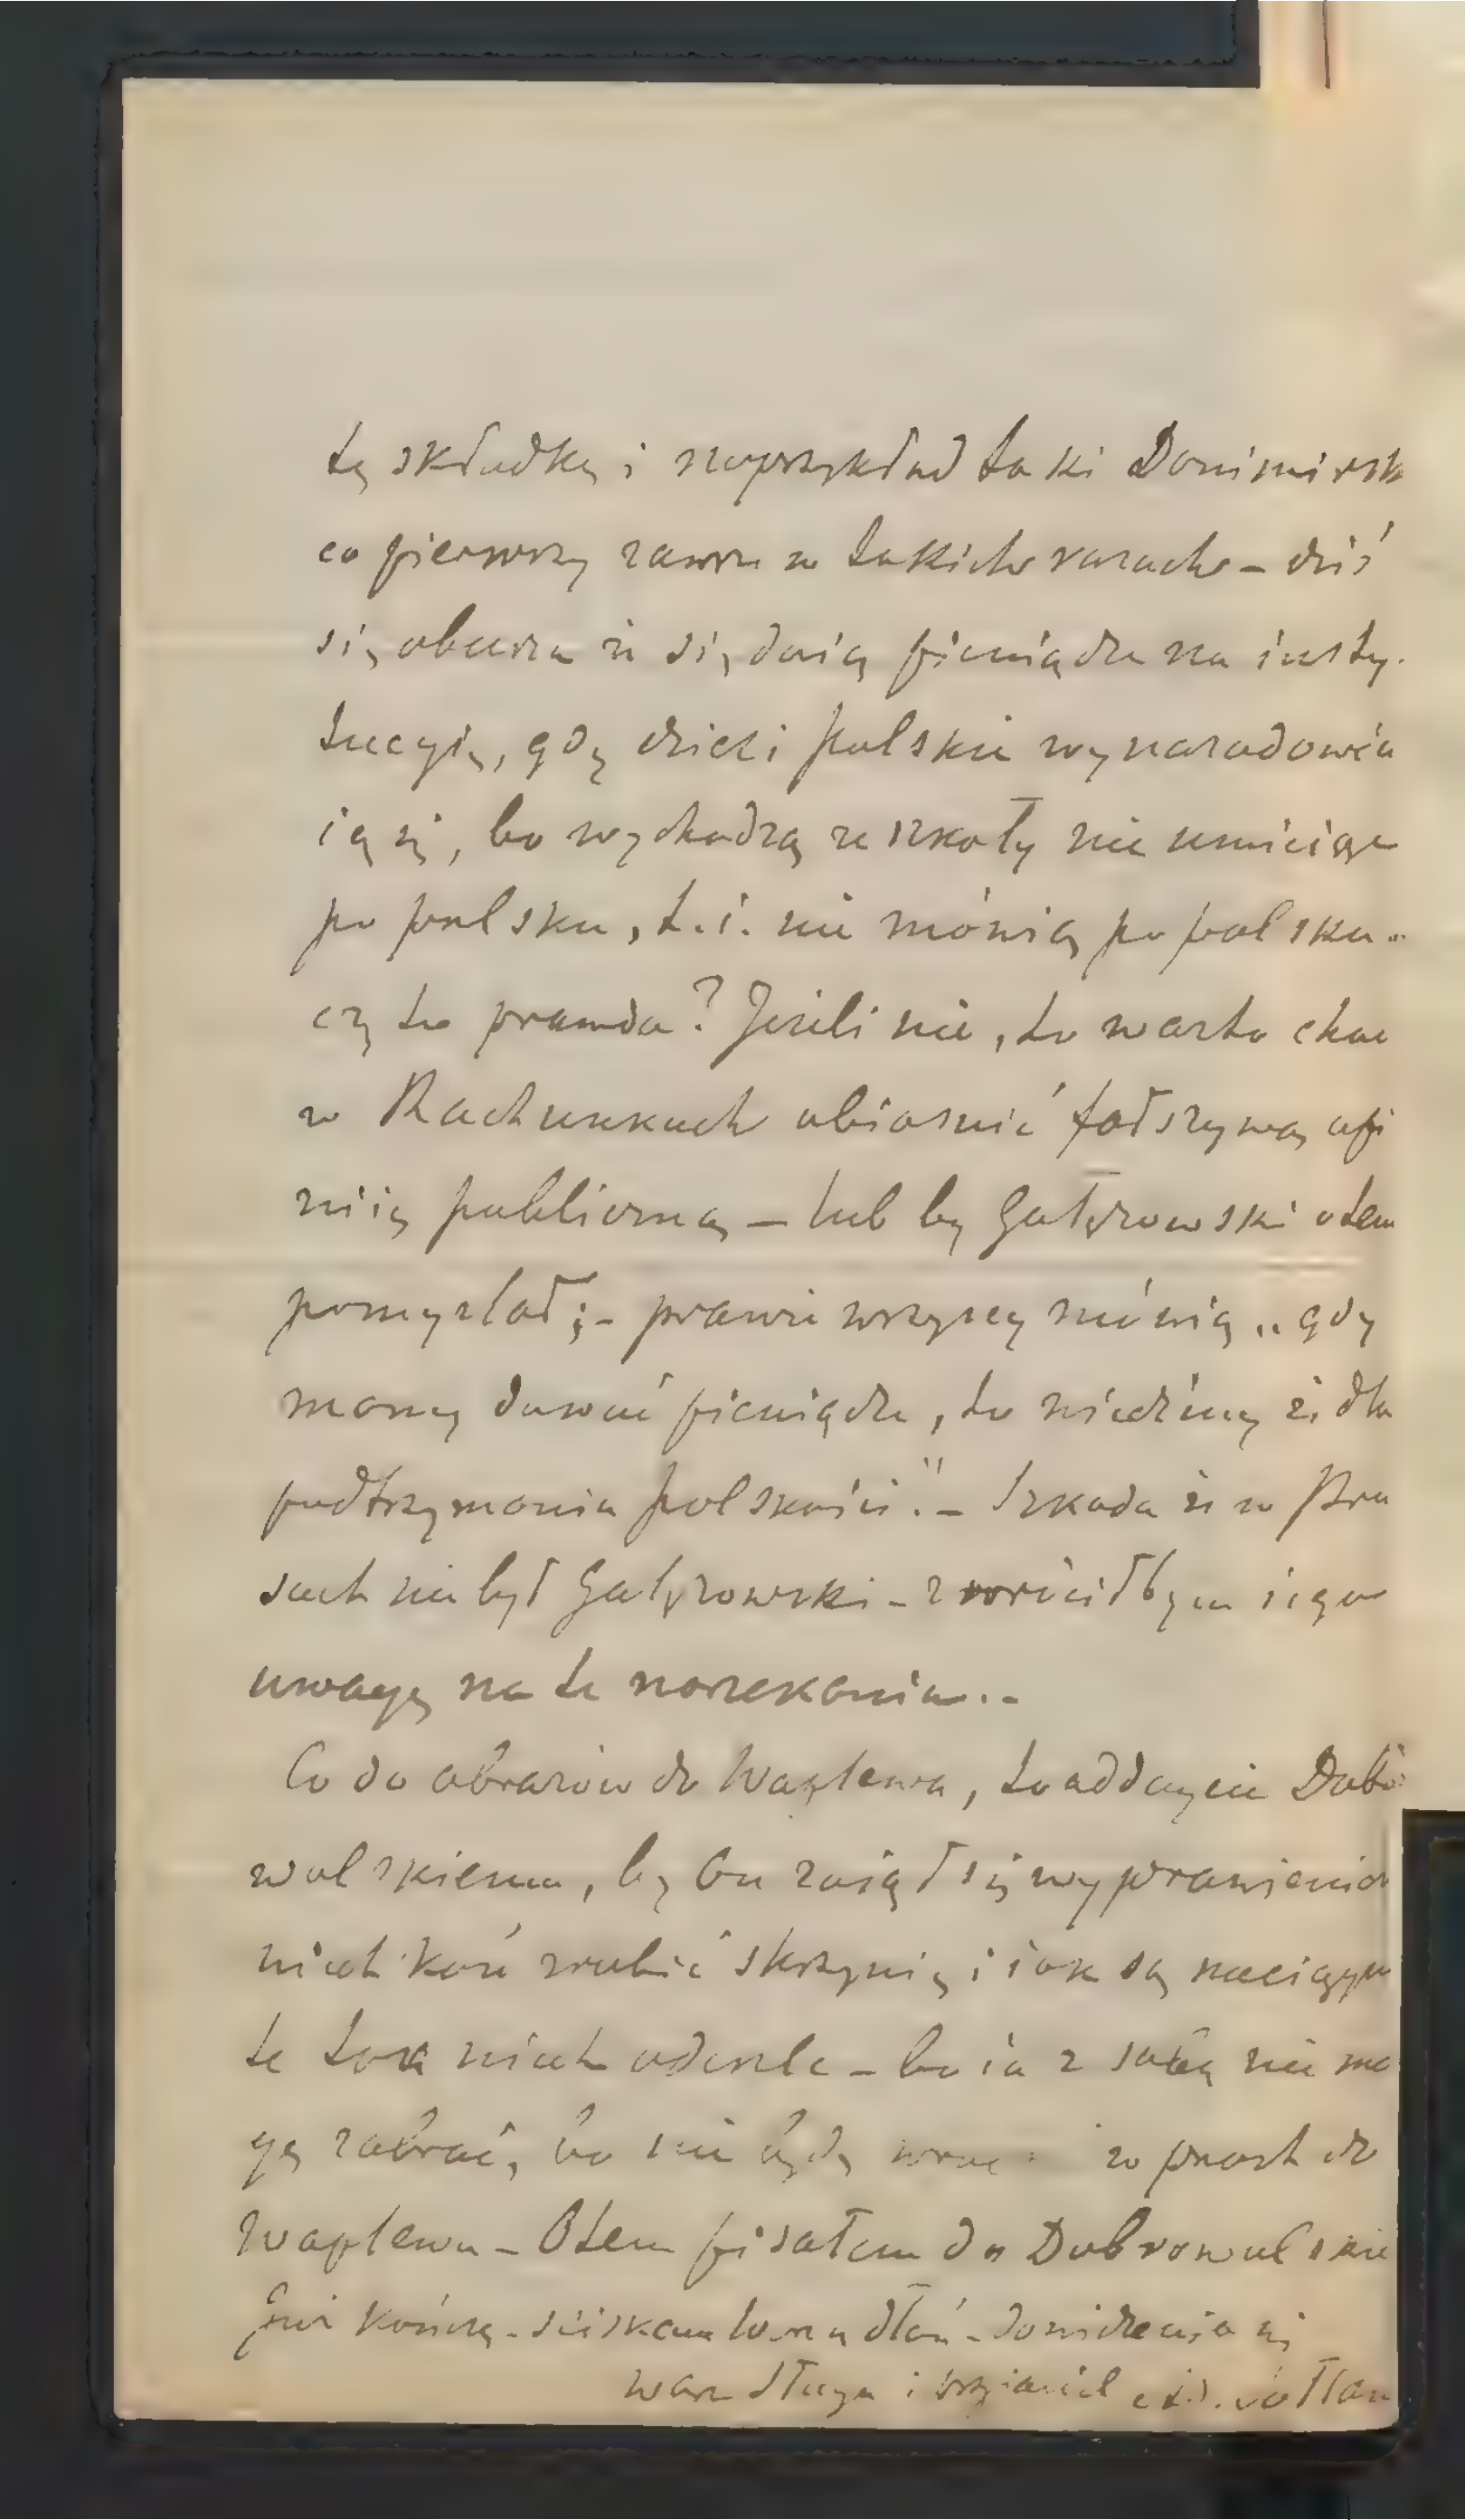 tę składkę i naprzykład taki Donimirsk
co pierwszy zawsze w takich razach – dziś
się oburza że się daią pieniądze na insty-
tucyię, gdy dzieci polskie wynaradowia
ią się, bo wychodzą ze szkoły nie umieiąc
po polsku, t. i. nie mówią po polsku..
czy to prawda? Jeżeli nie, to warto choć
w Rachunkach obiaśnić fałszywą opi
niię publiczną – lub by Gałęzowski o tem
pomyślał; – prawie wszyscy mówią „gdy
mamy dawać pieniądze, to wiedźmy że dla
podtrzymania polskości." – Szkoda że w Pru
sach nie był Gałęzowski – zwróciłbym iego
uwagę na te narzekania. –
Co do obrazów do Waplewa, to oddaycie Dobro
wolskiemu, by On zaiął się wyprawieniem
niech każe zrobić skrzynię i iak są naciągnię
te tak niech odeszle – bo ia z sobą nie mo
gę zabrać, bo nie będę wprost do
Waplewa – O tem pisałem do Dobrowolskie
Już kończę – ściskam Wam dłoń – do widzenia się
Wasz sługa i przyjaciel